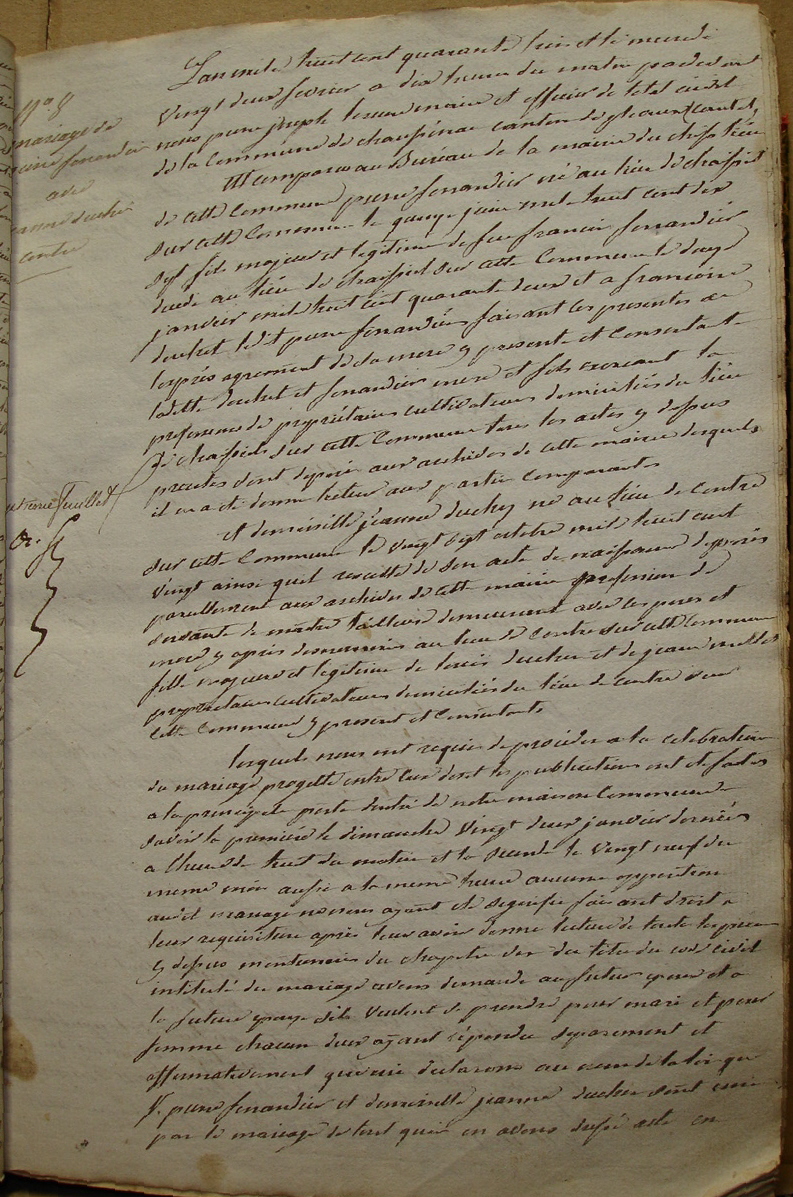 N° 8
mariage de
pierre fenandier
avec
jeanne duchet
contre
L'an mil huit cent quarante trois et le mercredi
vingt deux fevrier a dix heures du matin pardevant
nous pierre joseph maire et officier de l'état civil
de la Commune de chaussenac canton de pleaux (Cantal)
Est comparu au Bureau de la mairie du chef lieu
de cette Commune pierre fenandier né au lieu de
sur cette Commune le quinze juin mil huit cent dix
sept fils majeur et legitime de feu francois fenandier
décédé au lieu de sur cette Commune le douze
janvier mil huit cent quarante deux et a francoise
duchet ledit pierre fenandier faisant les presentes de
l'exprès agrement de sa mere y presente et Consentante
ladite duchet et fenandier mere et fils exercant la
profession de propriétaires cultivateurs domiciliés du lieu
de sur cette Commune tous les actes y dessus
sont déposés aux archives de cette mairie desquels
il en a été donné lecture aux parties Comparantes
et demoiselle jeanne duchet né au lieu de Contre
sur cette Commune le vingt sept octobre mil huit cent
vingt ainsi qu'il resulte de son acte de naissance déposés
pareillement aux archives de cette mairie profession de
demeurant avec ses pere et
mere y après denommés au lieu de Contre sur cette Commune
fille majeure et legitime de louis duchet et de jeanne
proprietaires cultivateurs domiciliés du lieu de Contre sur
cette Commune y present et Consentants
lesquels nous ont requis de proceder a la celebration
du mariage projetté entre eux dont les publications ont été faites
a la principale porte d'entré de notre maison Commune
savoir la première le dimanche vingt deux janvier dernier
a l'heure de huit du matin et la seconde le vingt neuf du
meme mois aussi a la meme heure aucune opposition
audit mariage ne nous ayant été signifié faisant droit a
leur requisition après leur avoir donné lecture de toutes les pieces
y dessus mentionnées du chapitre six du titre du code civil
intitulé du mariage avons demandé au futur epoux et a
la future epouse s'ils veulent se prendre pour mari et pour
femme chacun d'eux ayant répondu separement et
affirmativement declarons au nom de la loi que
S. pierre fenandier et demoiselle jeanne duchet sont unis
par le mariage de tout quoi en avons dressé acte en